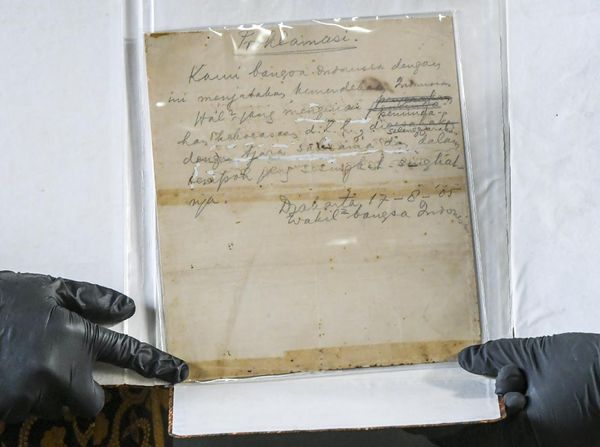 Proklamasi.
Kami bangsa Indonesia dengan
ini menjatakan kemerdekaan Indonesia.
Hal² jang mengenai peminda-
han kekoeasaan d.l.l., diselenggarakan
dengan tjara saksama dan dalam
tempoh jang sesingkat-singkat
nja.
Djakarta 17-8-'05
Wakil² bangsa Indonesia